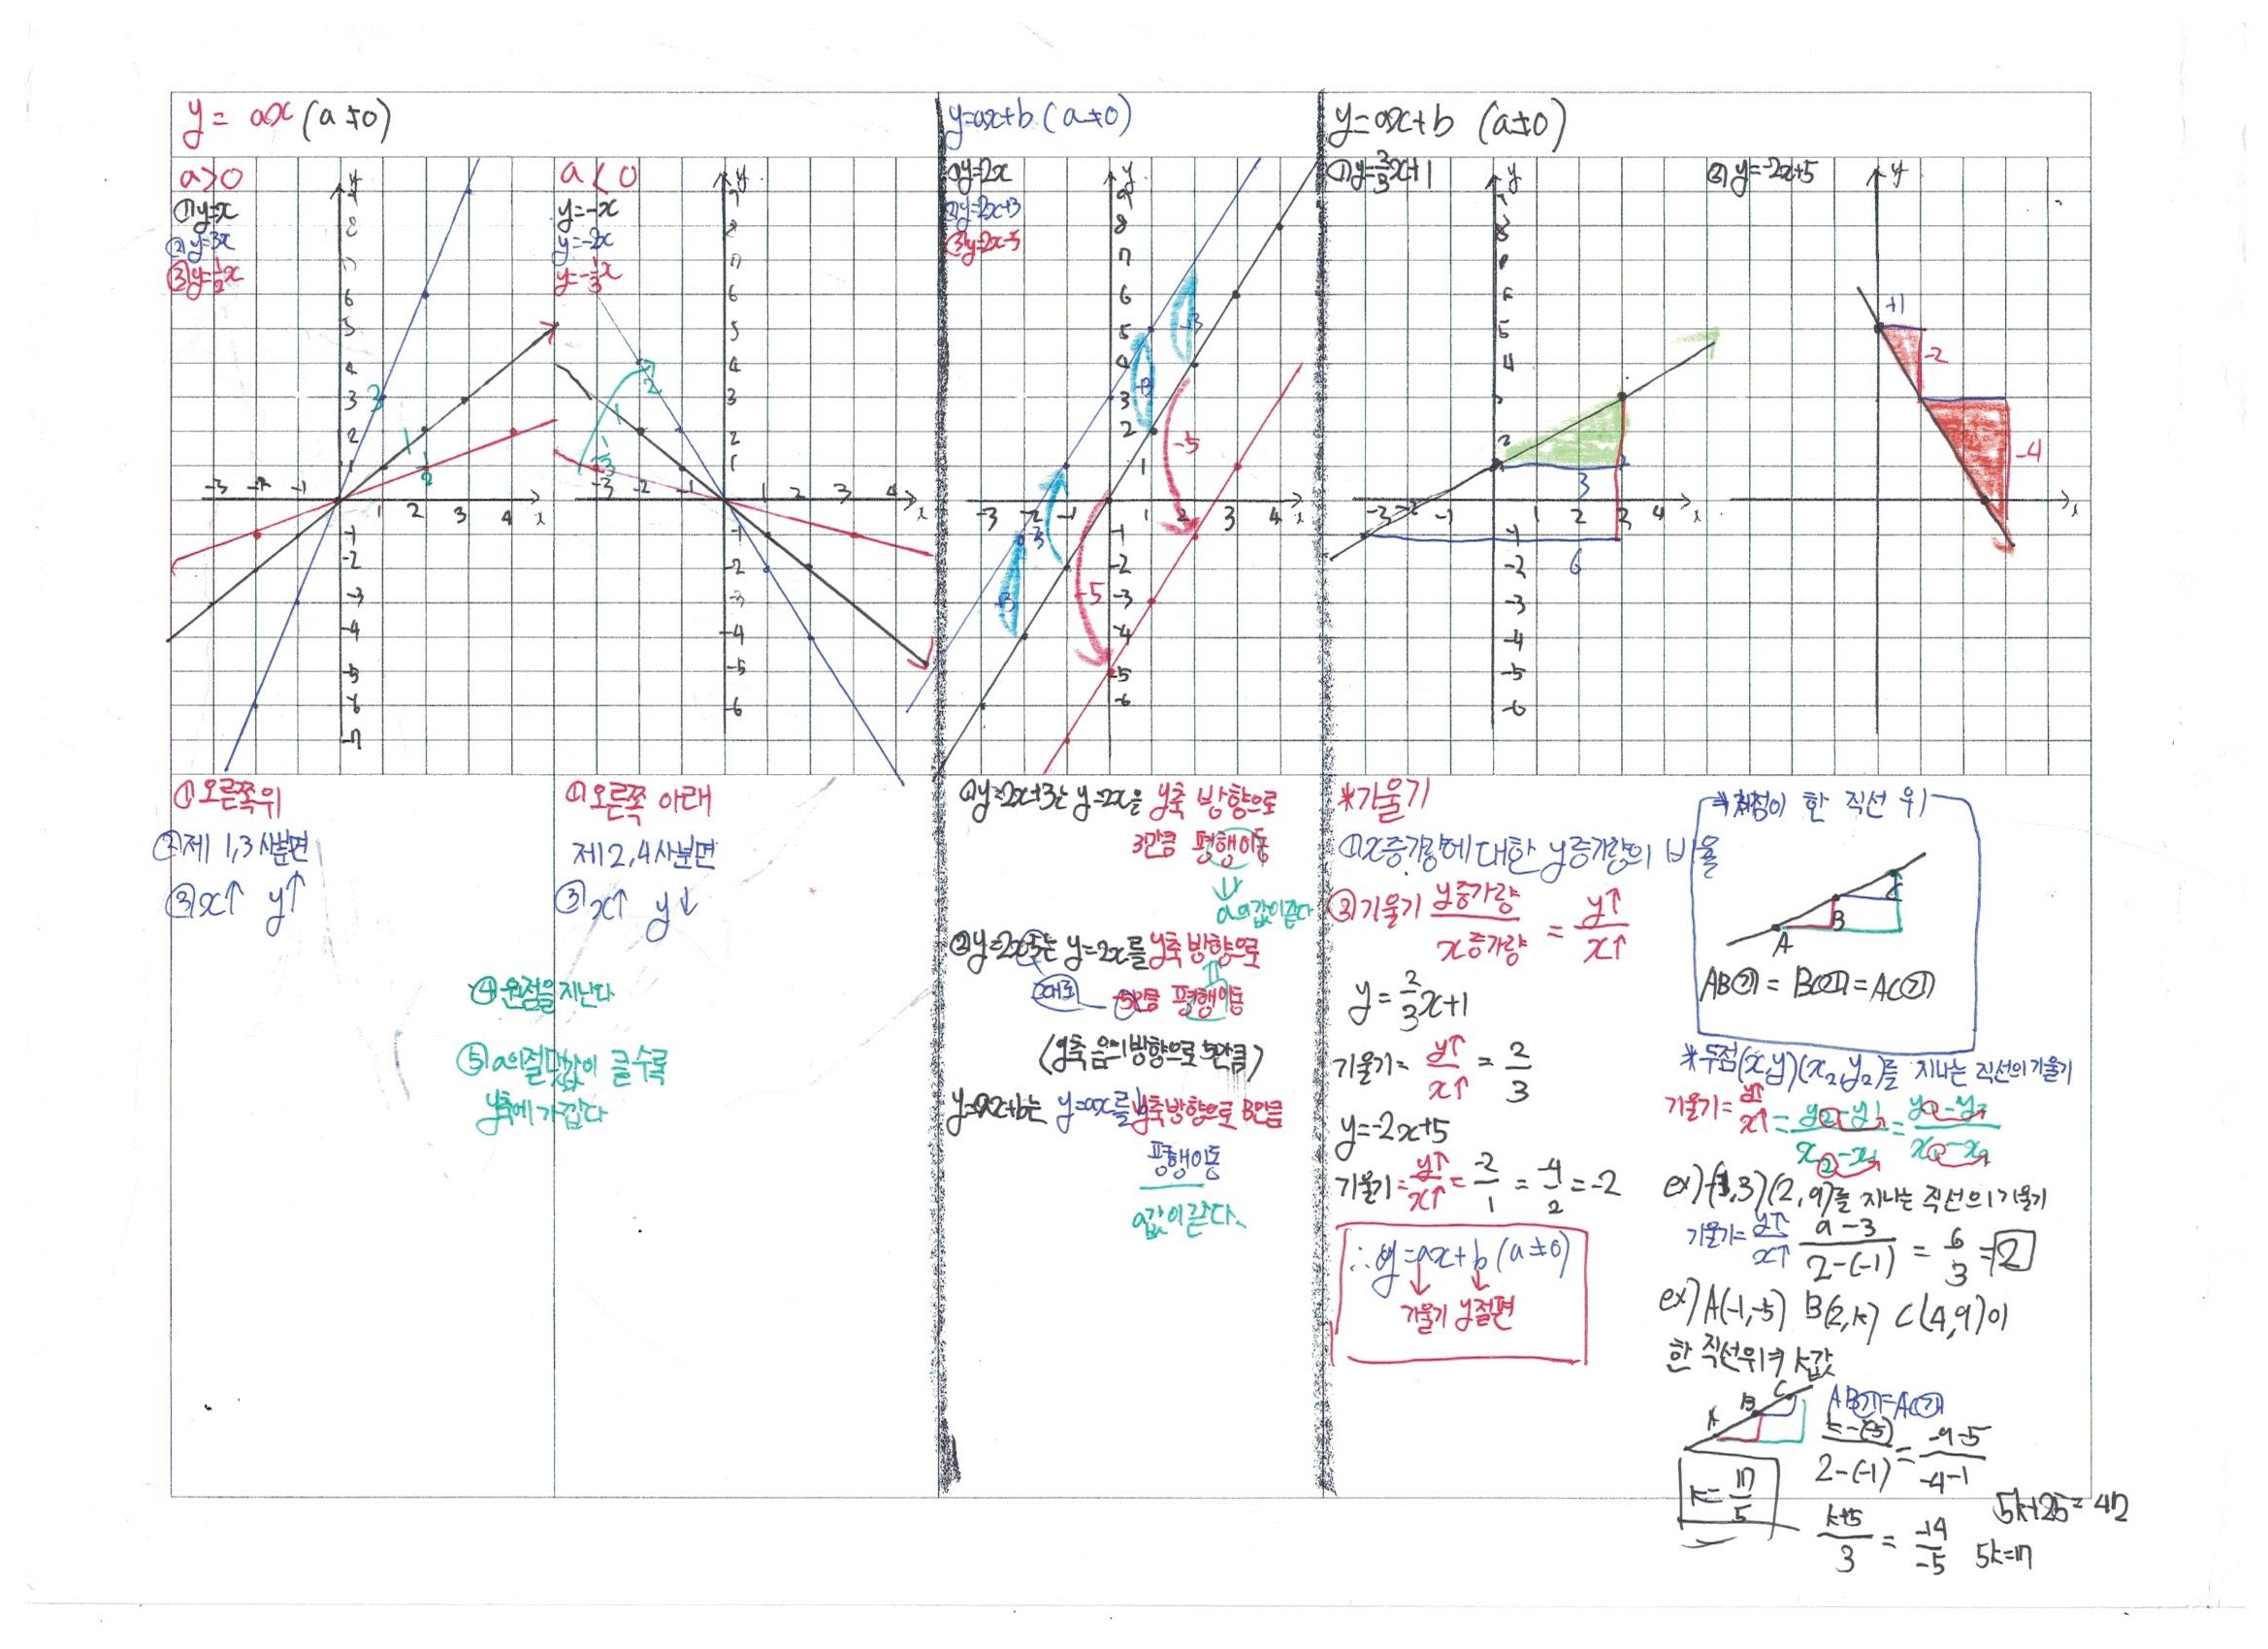 y = ax (a≠0)
a>0
① y=x
② y=3x
③ y=½x
a<0
y=-x
y=-2x
y=-⅓x
① 오른쪽위
② 제 1,3 사분면
③ x↑ y↑
① 오른쪽 아래
제 2,4 사분면
③ x↑ y↓
④ 원점을 지난다
⑤ a의절댓값이 클수록
y축에 가깝다
y=ax+b (a≠0)
① y=2x
② y=2x+3
③ y=2x-5
+3
+3
+3
+3
-5
-5
① y=2x+3는 y=2x을 y축 방향으로
3만큼 평행이동
a의값이같다
② y=2x-5는 y=2x를 y축 방향으로
-5만큼 평행이동
(y축 음의 방향으로 5만큼)
y=ax+b는 y=ax를 y축방향으로 B만큼
평행이동
a값이 같다.
y=ax+b (a≠0)
① y=⅔x+1
3
6
② y=-2x+5
+1
-2
-4
*기울기
① x증가량에 대한 y증가량의 비율
③ 기울기 y증가량/x증가량 = y↑/x↑
y=⅔x+1
기울기= y↑/x↑ = 2/3
y=-2x+5
기울기= y↑/x↑ = -2/1 = -4/2 = -2
∴ y=ax+b (a≠0)
기울기 y절편
*세점이 한 직선 위
A B C
AB㉠ = BC㉠ = AC㉠
*두점(x,y)(x₂,y₂)를 지나는 직선의 기울기
기울기= y↑/x↑ = y₂-y₁/x₂-x₁ = y₁-y₂/x₁-x₂
ex) (-1,3)(2,9)를 지나는 직선의 기울기
기울기= y↑/x↑ 9-3/2-(-1) = 6/3 = 2
ex) A(-1,-5) B(2,k) C(4,9)이
한 직선위 k값
A B C
AB㉠=AC㉠
k-(-5)/2-(-1) = -9-5/-4-1
k+5/3 = -14/-5
5k+25=42
5k=17
k=17/5